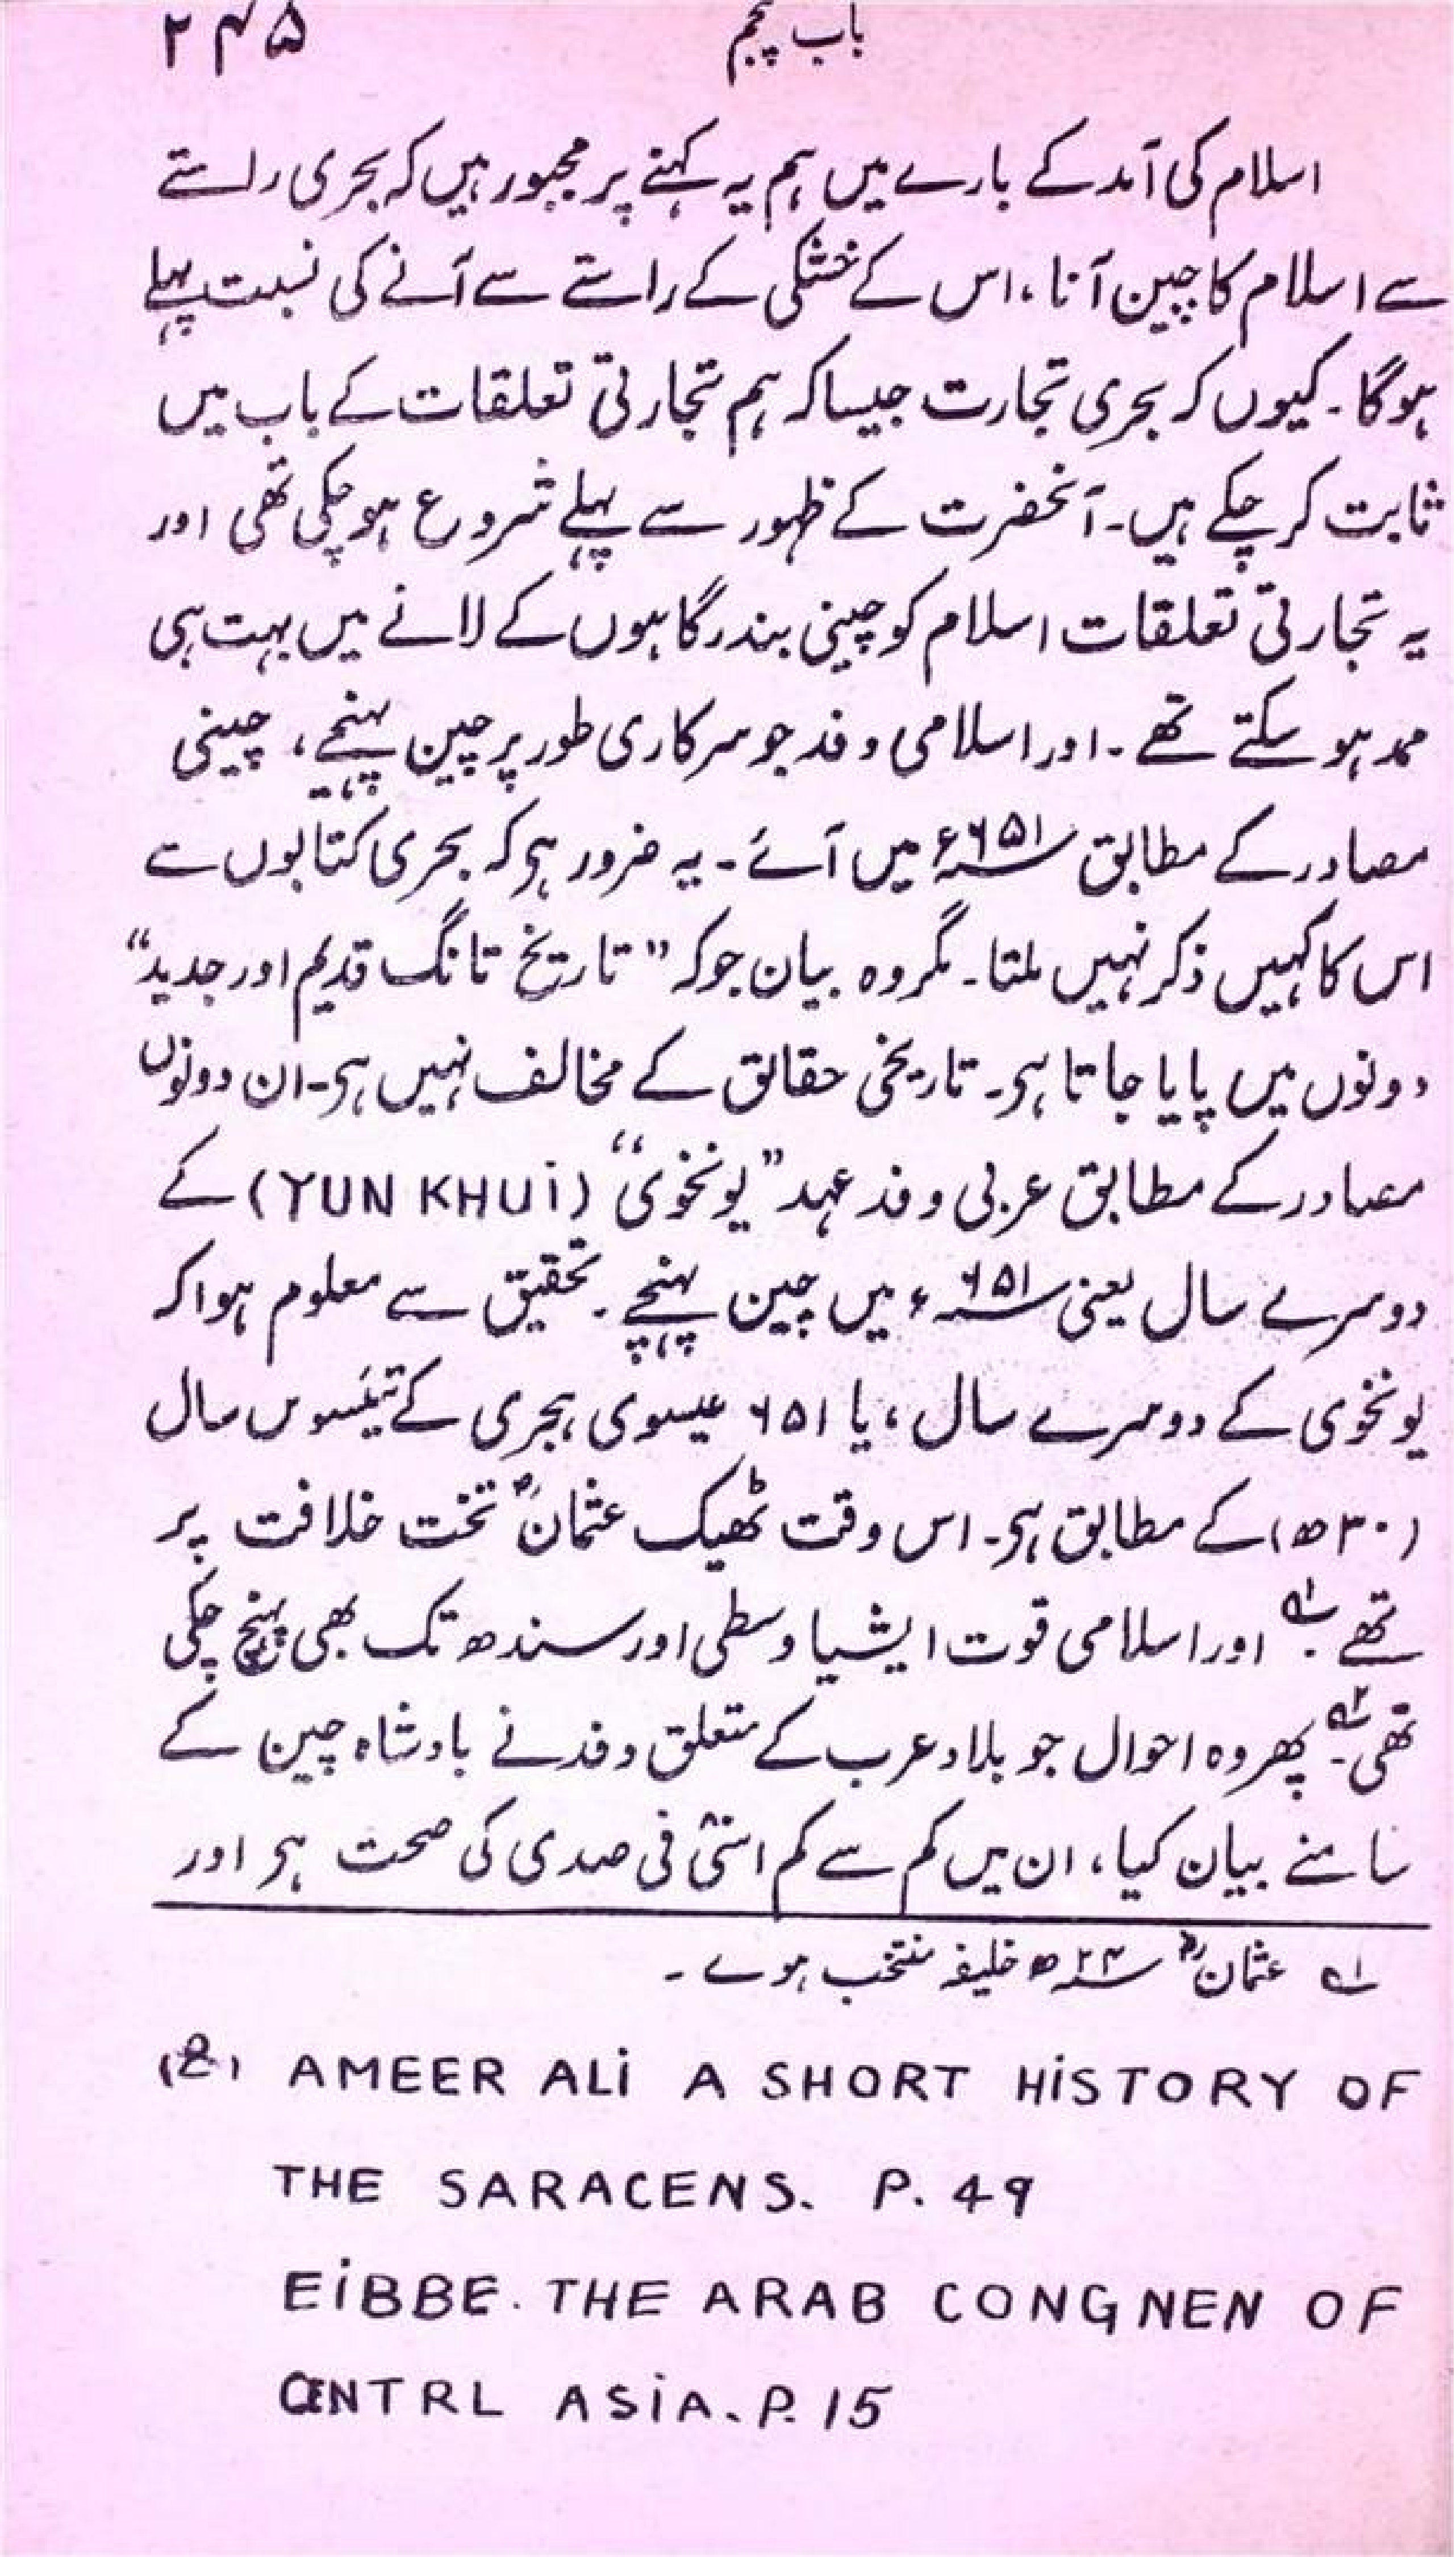 باب پنجم ۲۴۵
اسلام کی آمد کے بارے میں ہم یہ کہنے پر مجبور ہیں کہ بحری راستے
سے اسلام کا چین آنا، اس کے خشکی کے راستے سے آنے کی نسبت پہلے
ہوگا۔ کیوں کہ بحری تجارت جیسا کہ ہم تجارتی تعلقات کے باب میں
ثابت کرچکے ہیں۔ آنحضرت کے ظہور سے پہلے شروع ہوچکی تھی اور
یہ تجارتی تعلقات اسلام کو چینی بندرگاہوں کے لانے میں بہت ہی
ممد ہوسکتے تھے۔ اور اسلامی وفد جو سرکاری طور پر چین پہنچے، چینی
مصادر کے مطابق ۶۵۱ء میں آئے۔ یہ ضرور ہی کہ بحری کتابوں سے
اس کا کہیں ذکر نہیں ملتا۔ مگر وہ بیان جو کہ ”تاریخ تانگ قدیم اور جدید“
دونوں میں پایا جاتا ہی۔ تاریخی حقائق کے مخالف نہیں ہی۔ ان دونوں
مصادر کے مطابق عربی وفد عہد ”یونخوی“ (YUN KHUi) کے
دوسرے سال یعنی ۶۵۱ء میں چین پہنچے۔ تحقیق سے معلوم ہوا کہ
یونخوی کے دوسرے سال، یا ۶۵۱ عیسوی ہجری کے تیسویں سال
(۳۰ھ) کے مطابق ہی۔ اس وقت ٹھیک عثمانؓ تخت خلافت پر
تھے۔ ؎۱ اور اسلامی قوت ایشیا وسطی اور سندھ تک بھی پہنچ چکی
تھی۔ ؎۲ پھر وہ احوال جو بلاد عرب کے متعلق وفد نے بادشاہ چین کے
سامنے بیان کیا، ان میں کم سے کم اسّی فی صدی کی صحت ہی اور
؎۱ عثمانؓ ۲۴ھ خلیفہ منتخب ہوے۔
(2) AMEER ALi A SHORT HiSTORY OF
THE SARACENS. P. 49
EiBBE. THE ARAB CONGNEN OF
CENTRL ASiA. P. 15